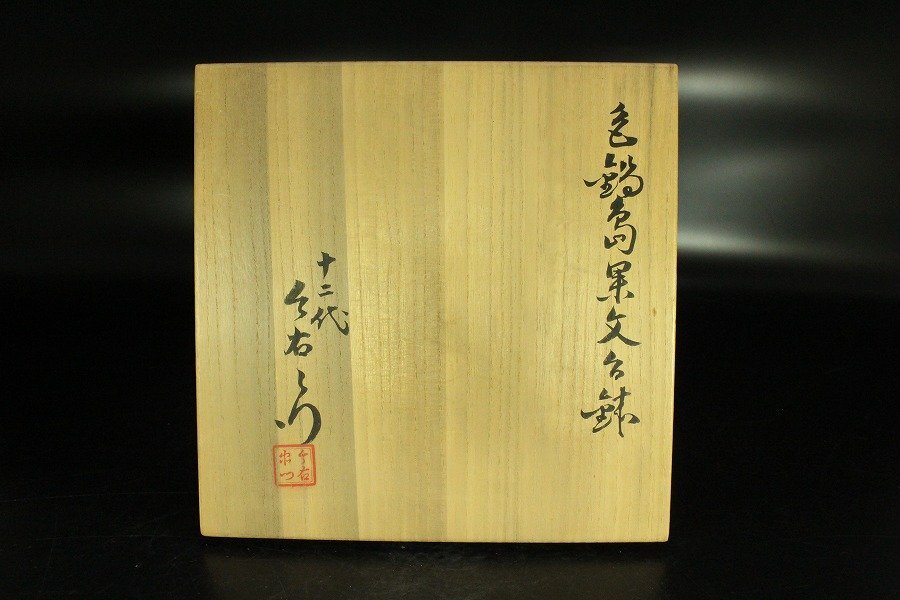 色鍋島果文台鉢
十二代
今右衛門
今右衛門